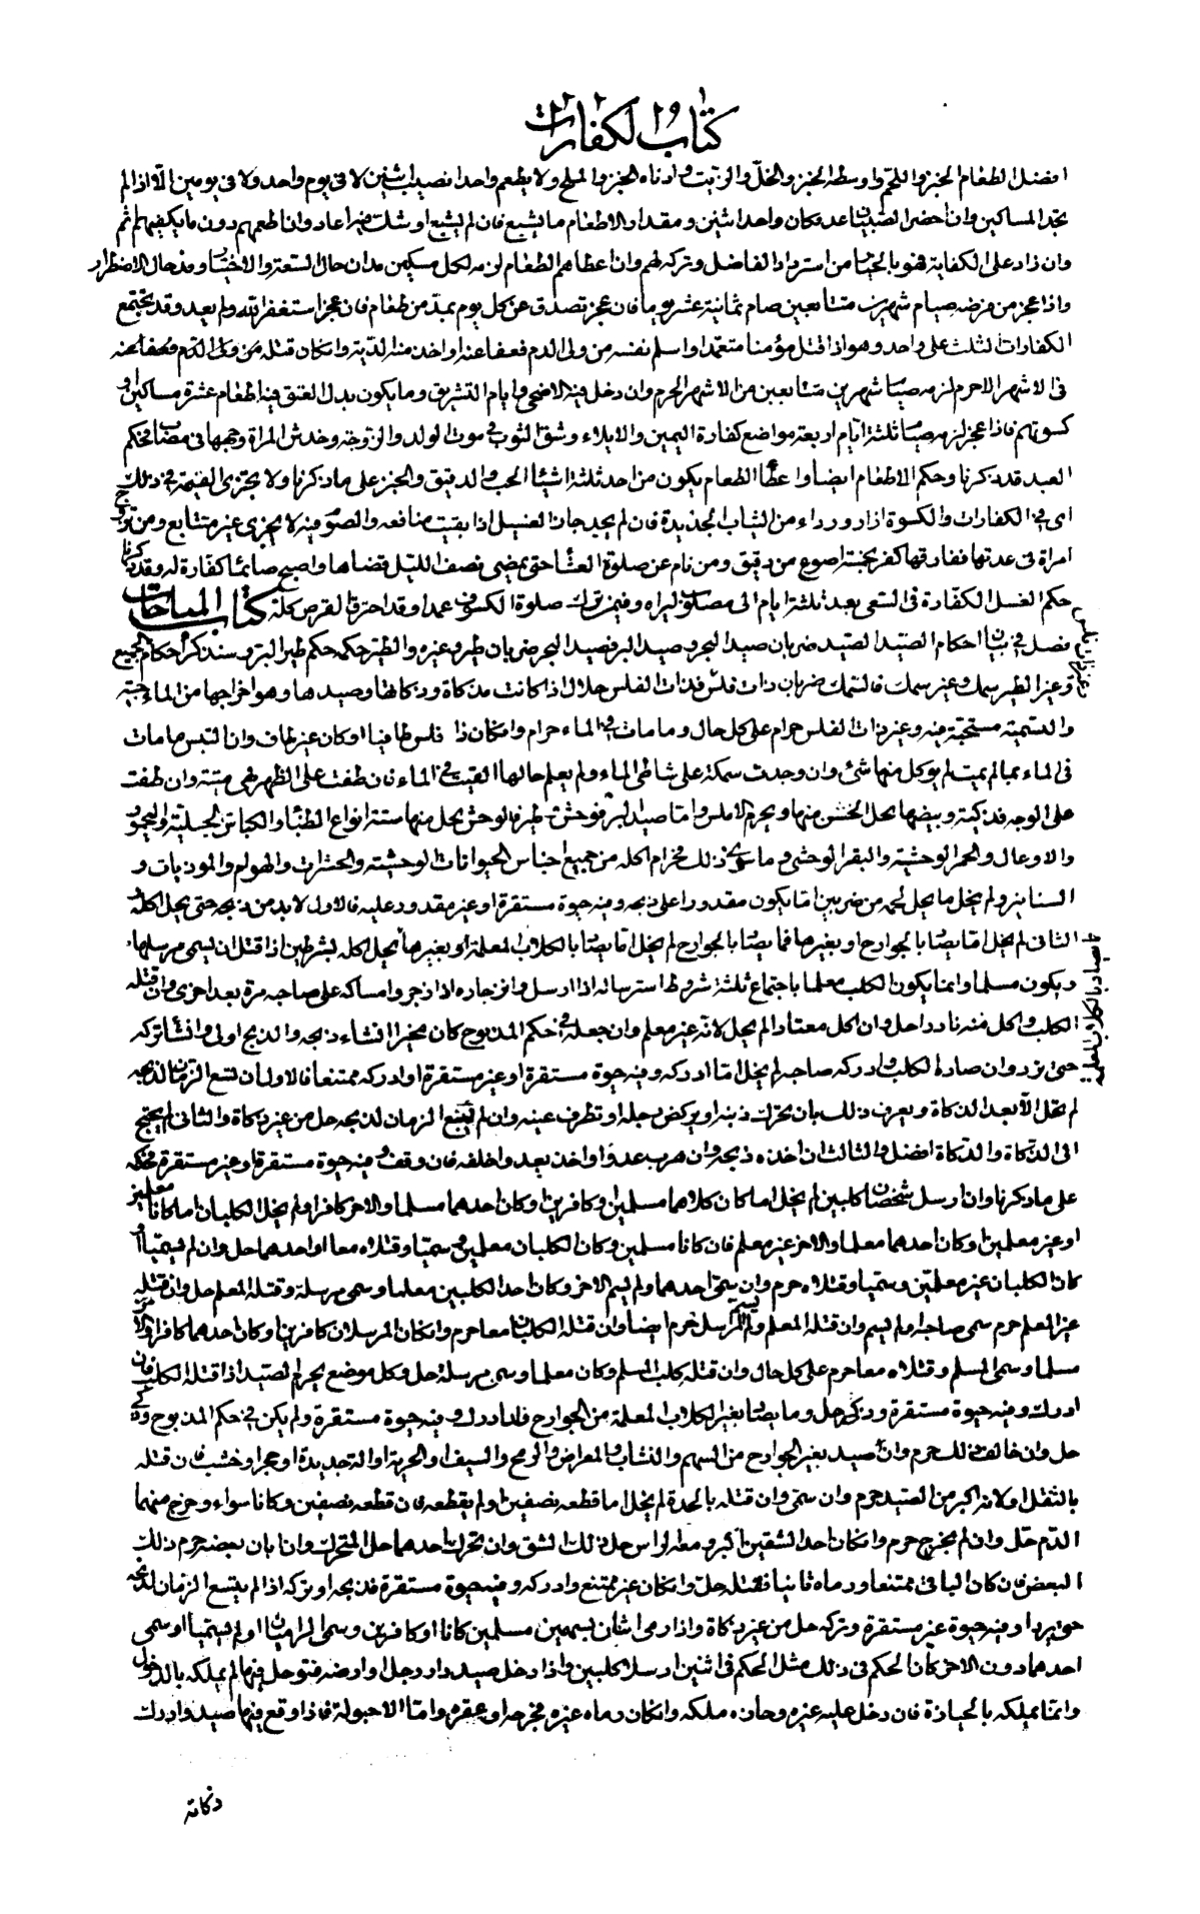 كتاب الكفارات
افضل الطعام الخبز واللحم واوسطه الخبز والخل والزيت وادناه الخبز والملح ولا يطعم واحدا نصيب اثنين لا فى يوم واحد ولا فى يومين الا اذا لم
يجد المساكين وان احضر الصبيان عد مكان واحد اثنين ومقدار الاطعام ما يشبع فان لم يشبع او شك فيه اعاد وان اطعمهم دون ما يكفيهم اثم
وان زاد على الكفاية فهو بالخيار من استرداد الفاضل وتركه لهم وان اعطاهم الطعام لزمه لكل مسكين مدان حال السعة والاختيار ومد حال الاضطرار
واذا عجز من فرضه صيام شهرين متتابعين صام ثمانية عشر يوما فان عجز تصدق عن كل يوم بمد من طعام فان عجز استغفر الله ولم يعد وقد تجتمع
الكفارات الثلث على واحد وهو اذا قتل مؤمنا متعمدا واسلم نفسه من ولى الدم فعفا عنه او اخذ منه الدية وان كان قتله
فى الاشهر الحرم لزمه صيام شهرين متتابعين من الاشهر الحرم وان دخل فيه الاضحى وايام التشريق وما يكون بدل العتق فيه اطعام عشرة مساكين او
كسوتهم فاذا عجز لزمه صيام ثلثة ايام اربعة مواضع كفارة اليمين والايلاء وشق الثوب فى موت الولد والزوجة وخدش المراة وجهها فى مصاب وحكم
العبد قد ذكرنا وحكم الاطعام ايضا واعطاء الطعام يكون من احد ثلثة اشياء الحب والدقيق والخبز على ما ذكرنا ولا يجزى القيمة فى ذلك
اى فى الكفارات والكسوة ازار ورداء من الثياب الجديدة فان لم يجد جاز الغسيل اذا بقيت منافعه والصوم فيه لا يجزى غير متتابع ومن تزوج
امراة فى عدتها ففارقها كفر بخمسة اصوع من دقيق ومن نام عن صلوة العشاء حتى يمضى نصف الليل قضاها واصبح صائما كفارة له وقد ذكرنا
حكم الغسل الكفارة فى السعى بعد ثلثة ايام الى مصلوب ليراه وفيمن ترك صلوة الكسوف عمدا وقد احترق القرص كله كتاب المباحات
فصل فى بيان احكام الصيد الصيد ضربان صيد البحر وصيد البر فصيد البحر ضربان طير وغيره والطير حكمه حكم طير البر وسنذكر احكام الجميع
وغير الطير سمك وغير سمك فالسمك ضربان ذات فلس فذات الفلس حلال اذا كانت مذكاة وذكاتها وصيدها وهو اخراجها من الماء حية
والتسمية مستحبة فيه وغير ذات الفلس حرام على كل حال وما مات فى الماء حرام وان كان ذا فلس طافيا او كان غير طاف وان التبس ما مات
فى الماء بما لم يمت لم يوكل منها شئ وان وجدت سمكة على شاطى الماء ولم يعلم حالها القيت فى الماء فان طفت على الظهر فهى ميتة وان طفت
على الوجه فذكية وبيضها يحل الخشن منها ويحرم الاملس واما صيد البر فوحش وطير فالوحش يحل منها ستة انواع الظباء والكباش الجبلية واليحمور
والاوعال والحمر الوحشية والبقر الوحشى وما سوى ذلك فحرام اكله من جميع اجناس الحيوانات الوحشية والحشرات والهوام والموذيات و
السنانير ولم يخل ما يحل لحمه من ضربين اما يكون مقدورا على ذبحه وفيه حيوة مستقرة او غير مقدور عليه فالاول لا بد من ذبحه حتى يحل اكله و
الثانى لم يخل اما يصاد بالجوارح او بغيرها فما يصاد بالجوارح لم يخل اما يصاد بالكلاب المعلمة او بغيرها يحل اكله بشرطين اذا قتل ان يسمى مرسلها
ويكون مسلما وانما يكون الكلب معلما باجتماع ثلثة شروط استرساله اذا ارسل وانزجاره اذا زجر وامساكه على صاحبه مرة بعد اخرى وان قتله
الكلب واكل منه نادرا حل وان اكل معتادا لم يحل لانه غير معلم وان جعله فى حكم المذبوح كان مخيرا ان شاء ذبحه والذبح اولى وان شاء تركه
حتى يبرد وان صاد الكلب وادركه صاحبه لم يخل اما ادركه وفيه حيوة مستقرة او غير مستقرة او ادركه ممتنعا فالاول ان اتسع الزمان لذبحه
لم يحل الا بعد الذكاة ويعرف ذلك بان يحرك ذنبه او يركض رجله او تطرف عينه وان لم يتسع الزمان لذبحه حل من غير ذكاة والثانى لم يحتج
الى الذكاة والذكاة افضل والثالث ان اخذه ذبحه وان هرب عدوا واخذ بعد واخلفه فان وقف وفيه حيوة مستقرة او غير مستقرة فحكمه
على ما ذكرنا وان ارسل شخصان كلبين لم يخل اما كان كلاهما مسلمين او كافرين او كان احدهما مسلما والاخر كافرا ولم يخل الكلبان اما كانا معلمين
او غير معلمين او كان احدهما معلما والاخر غير معلم فان كانا مسلمين وكان الكلبان معلمين وسميا وقتلاه معا او احدهما حل وان لم يسميا او
كان الكلبان غير معلمين وسميا وقتلاه حرم وان سمى احدهما ولم يسم الاخر وكان احد الكلبين معلما وسمى مرسله وقتله المعلم حل وان قتله
غير المعلم حرم سمى صاحبه او لم يسم وان قتله المعلم ولم يسم المرسل حرم ايضا وان قتله الكلبان معا حرم وان كان المرسلان كافرين او كان احدهما كافرا والاخر
مسلما وسمى المسلم وقتلاه معا حرم على كل حال وان قتله كلب المسلم وكان معلما وسمى مرسله حل وكل موضع يحرم الصيد اذا قتله الكلب فان
ادرك وفيه حيوة مستقرة وذكى حل وما يصاد بغير الكلاب المعلمة من الجوارح فاذا ادرك وفيه حيوة مستقرة ولم يكن فى حكم المذبوح وذكى
حل وان خالف ذلك حرم وان صيد بغير الجوارح من السهم والنشاب والمعراض والرمح والسيف والحربة او الة حديدة او حجر او خشب فان قتله
بالثقل او لانه اكبر من الصيد حرم وان سمى وان قتله بالحدة لم يخل اما قطعه نصفين او لم يقطعه فان قطعه نصفين وكانا سواء وخرج منهما
الدم حل وان لم يخرج حرم وان كان احد الشقين اكبر ومعه الراس حل ذلك الشق وان تحرك احدهما حل المتحرك وان ابان بعضه حرم ذلك
البعض فان كان الباقى ممتنعا ورماه ثانيا فقتله حل وان كان غير ممتنع وادركه وفيه حيوة مستقرة فذبحه او تركه اذا لم يتسع الزمان لذبحه
حتى يبرد او فيه حيوة غير مستقرة وتركه حل من غير ذكاة واذا رمى اثنان بسهمين مسلمين كانا او كافرين وسمى الراميان او لم يسميا او سمى
احدهما دون الاخر كان الحكم فى ذلك مثل الحكم فى اثنين ارسلا كلبين واذا دخل صيد دار رجل او ارضه فتوحل فيها لم يملكه بالدخول
وانما يملكه بالحيازة فان دخل عليه غيره وحازه ملكه وان كان رماه غيره فجرحه او عقره واما الاحبولة فاذا وقع فيها صيد وادرك
ذكاته
يصاد بالكلاب المعلمة